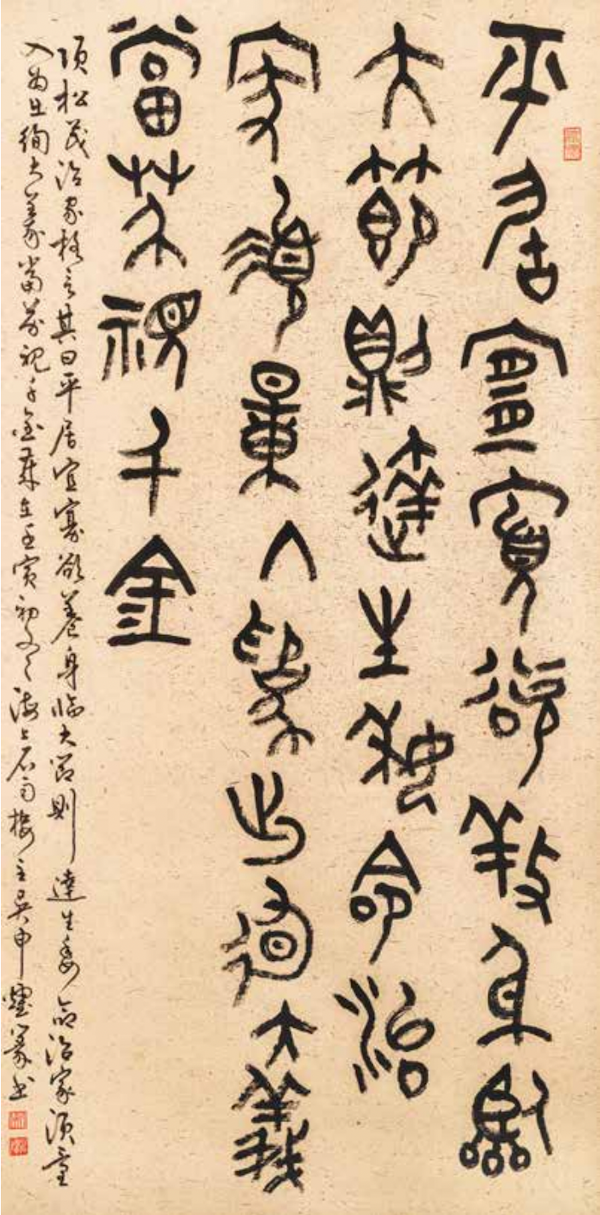 平居宜寡欲養身臨
大節則達生委命治
家須量入為出徇大義
當芥視千金
項松茂治家格言其曰平居宜寡欲養身臨大節則達生委命治家須量
入為出徇大義當芥視千金歲在壬寅初海上樓主吳申耀篆書